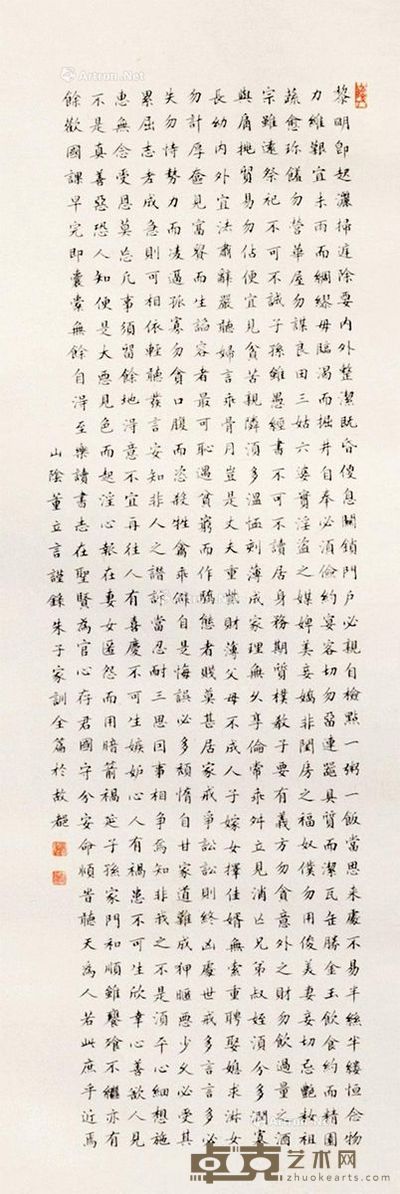 黎明即起灑掃庭除要內外整潔既昏便息關鎖門戶必親自檢點一粥一飯當思来處不易半絲半縷恒念物
力維艱宜未雨而綢繆毋臨渴而掘井自奉必須儉約宴客切勿留連器具質而潔瓦缶勝金玉飲食約而精園
蔬愈珍饈勿營華屋勿謀良田三姑六婆實淫盜之媒婢美妾嬌非閨房之福奴僕勿用俊美妻妾切忌艷妝祖
宗雖遠祭祀不可不誠子孫雖愚經書不可不讀居身務期質樸教子要有義方勿貪意外之財勿飲過量之酒
與肩挑貿易勿佔便宜見貧苦親鄰須多溫恤刻薄成家理無久享倫常乖舛立見消亡兄弟叔姪須分多潤寡
長幼內外宜法肅辭嚴聽婦言乖骨月豈是丈夫重貲財薄父母不成人子嫁女擇佳婿無索重聘娶媳求淑女
勿計厚奩見富貴而生諂容者最可恥遇貧窮而作驕態者賤莫甚居家戒爭訟訟則終凶處世戒多言言多必
失勿恃勢力而凌逼孤寡勿貪口腹而恣殺牲禽乖僻自是悔誤必多頹惰自甘家道難成狎暱惡少久必受其
累屈志老成急則可相依輕聽發言安知非人之譖訴當忍耐三思因事相爭焉知非我之不是須平心細想施
惠無念受恩莫忘凡事須留餘地得意不宜再往人有喜慶不可生嫉妒心人有禍患不可生欣幸心善欲人見
不是真善惡恐人知便是大惡見色而起淫心報在妻女匿怨而用暗箭禍延子孫家門和順雖饔飧不繼亦有
餘歡國課早完即囊橐無餘自得至樂讀書志在聖賢為官心存君國守分安命順旹聽天為人若此庶乎近焉
山陰董立言謹錄朱子家訓全篇於故都
Artron.Net
卓克艺术网
zhuokearts.com